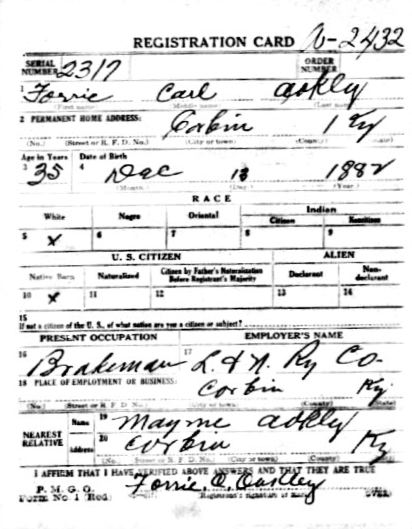 REGISTRATION CARD N-2432
SERIAL NUMBER 2317 ORDER NUMBER
1 Forrie Carl Oakly
(First name) (Middle name) (Last name)
2 PERMANENT HOME ADDRESS: Corbin Ky
(No.) (Street or R. F. D. No.) (City or town) (County) (State)
Age in Years Date of Birth
3 35 4 Dec 13 1882
(Month) (Day) (Year)
RACE
White Negro Oriental Indian
Citizen Noncitizen
5 x 6 7 8 9
U. S. CITIZEN ALIEN
Native Born Naturalized Citizen by Father's Naturalization Before Registrant's Majority Declarant Non-declarant
10 x 11 12 13 14
15
If not a citizen of the U. S., of what nation are you a citizen or subject?
PRESENT OCCUPATION EMPLOYER'S NAME
16 Brakeman 17 L. & N. Ry Co.
18 PLACE OF EMPLOYMENT OR BUSINESS: Corbin Ky
(No.) (Street or R. F. D. No.) (City or town) (County) (State)
NEAREST RELATIVE Name 19 Mayme Oakly
Address 20 Corbin Ky
(No.) (Street or R. F. D. No.) (City or town) (County) (State)
I AFFIRM THAT I HAVE VERIFIED ABOVE ANSWERS AND THAT THEY ARE TRUE
P. M. G. O.
Form No. 1 (Red) Forrie. C. Oakley
(Registrant's signature or mark) (OVER)